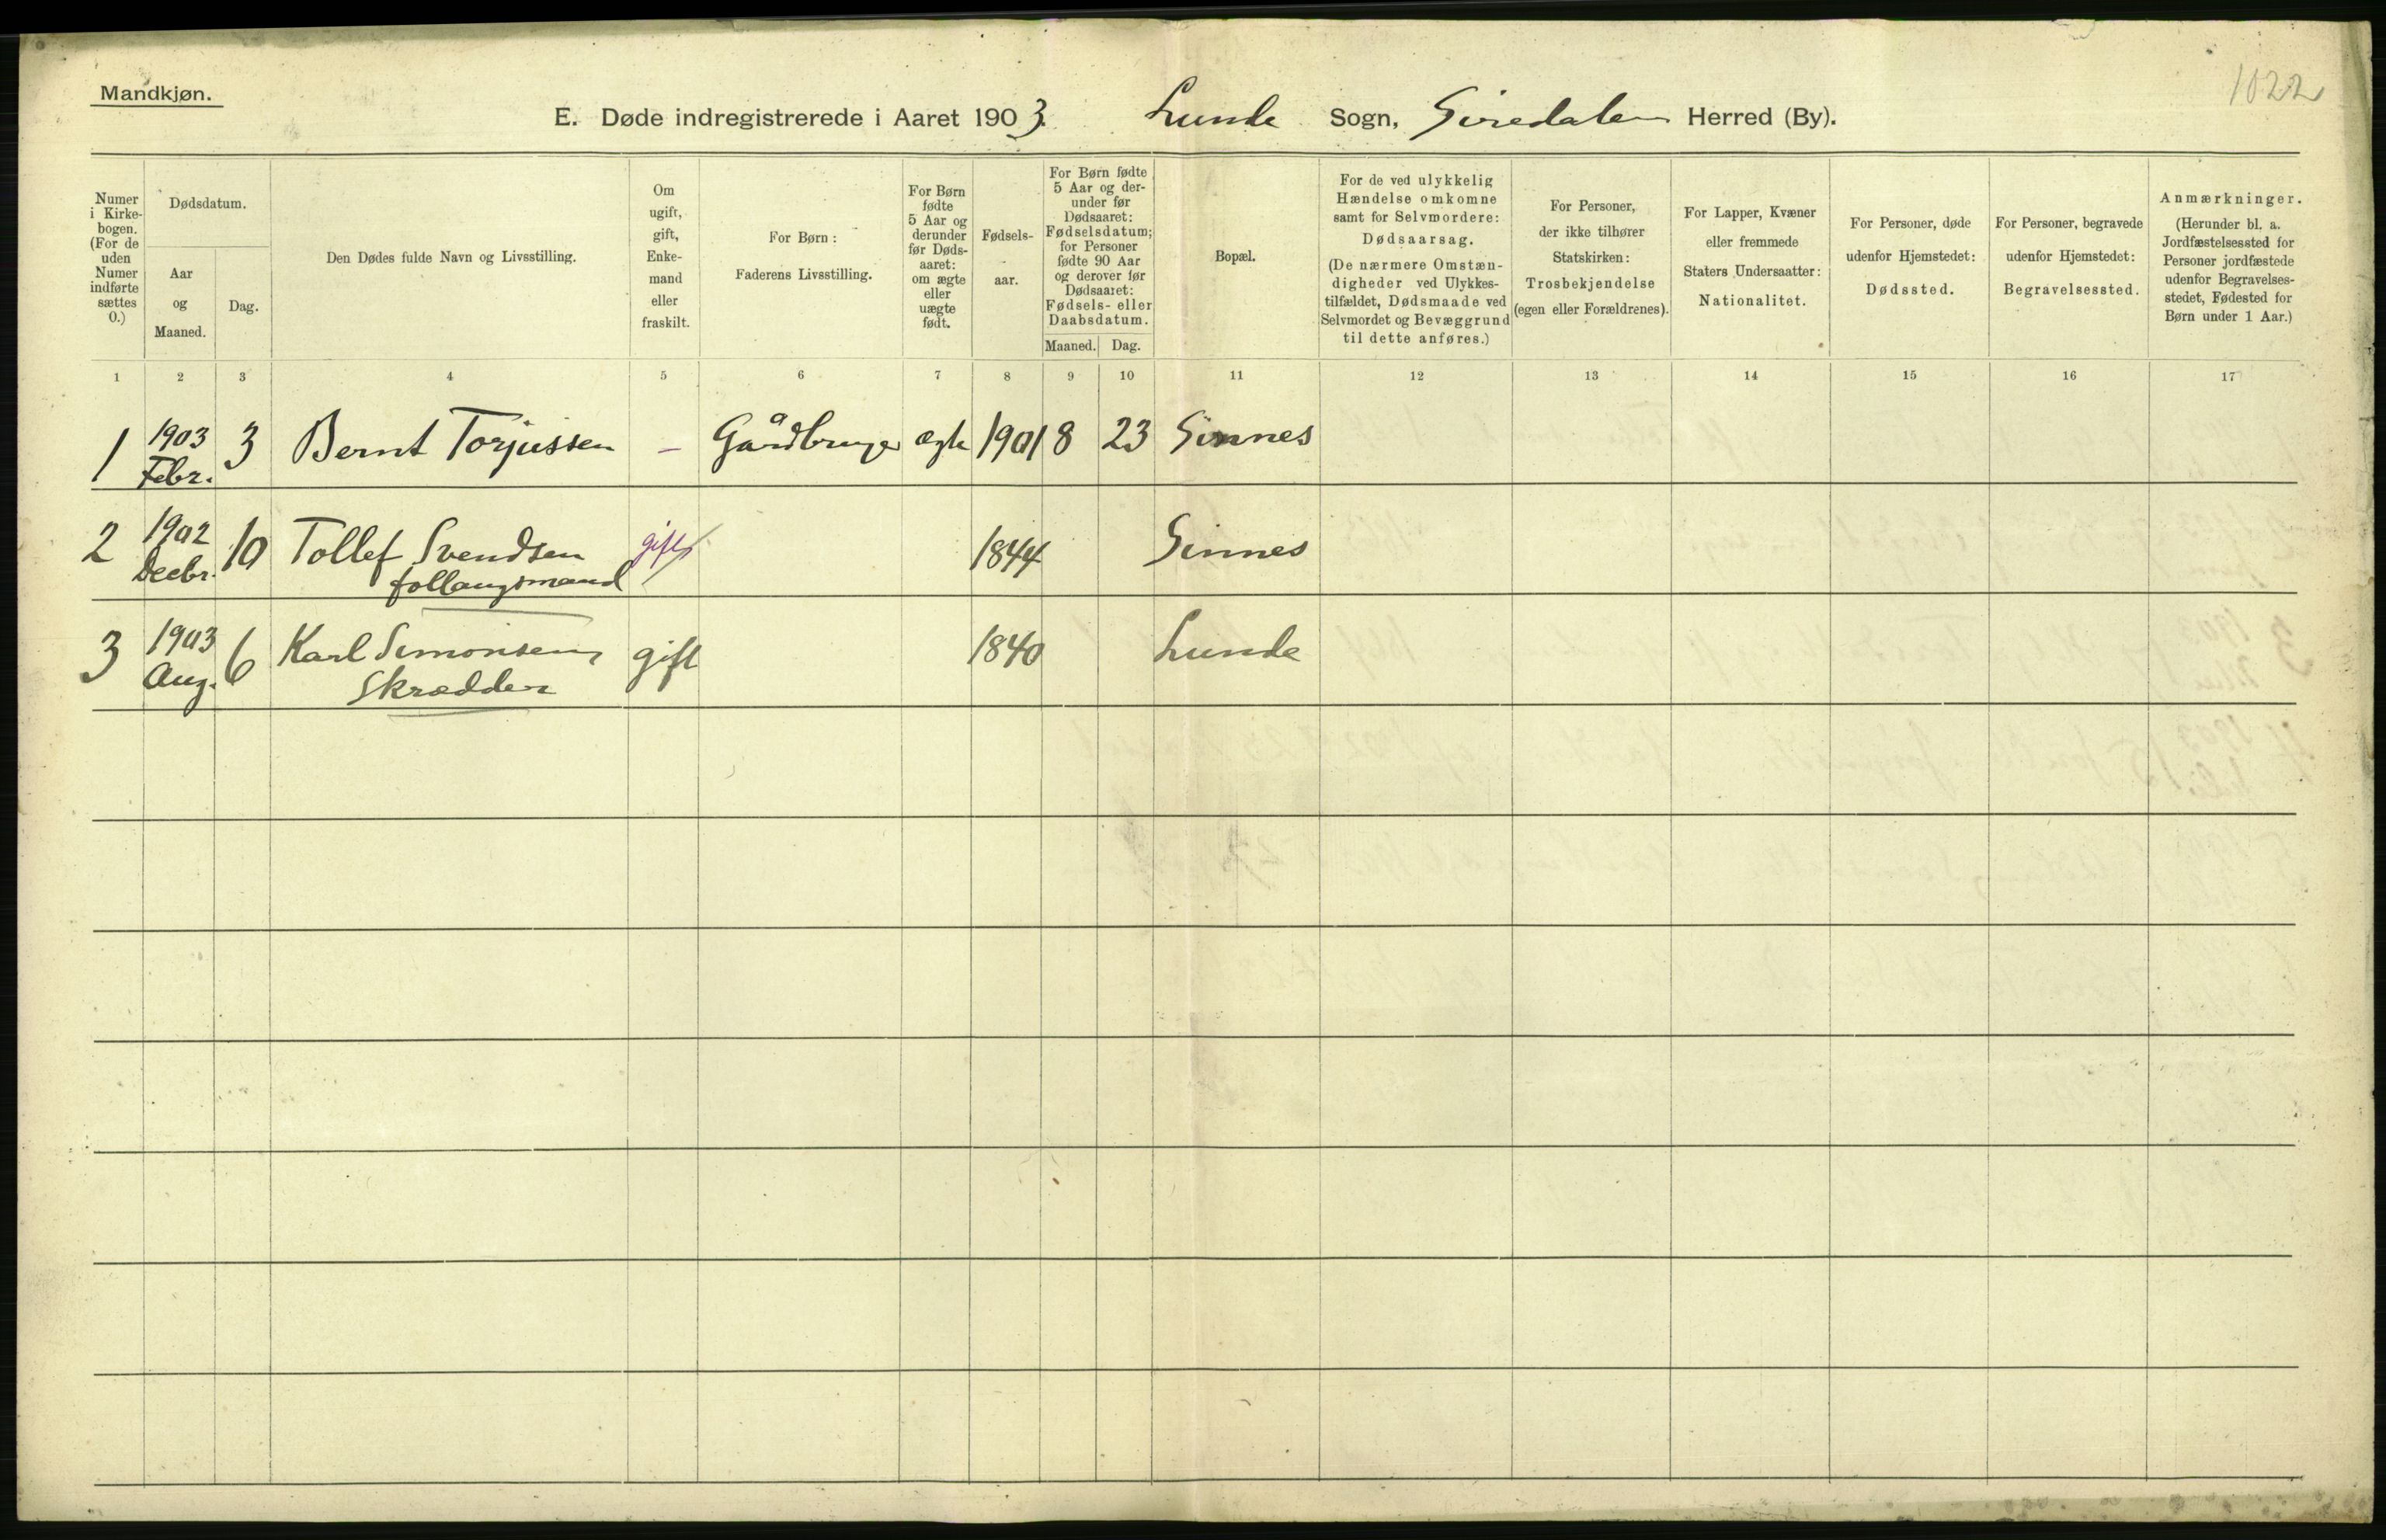 Mandkjøn.
1022
E. Døde indregistrerede i Aaret 1903. Lunde Sogn, Siredalen Herred (By).
Numer
i Kirke-
bogen.
(For de
uden
Numer
indførte
sættes
0.)
Dødsdatum.
Aar
og
Maaned.
Dag.
Den Dødes fulde Navn og Livsstilling.
Om
ugift,
gift,
Enke-
mand
eller
fraskilt.
For Børn:
Faderens Livsstilling.
For Børn
fødte
5 Aar og
derunder
før Døds-
aaret:
om ægte
eller
uægte
født.
Fødsels-
aar.
For Børn fødte
5 Aar og der-
under før
Dødsaaret:
Fødselsdatum;
for Personer
fødte 90 Aar
og derover før
Dødsaaret:
Fødsels- eller
Daabsdatum.
Maaned. Dag.
Bopæl.
For de ved ulykkelig
Hændelse omkomne
samt for Selvmordere:
Dødsaarsag.
(De nærmere Omstæn-
digheder ved Ulykkes-
tilfældet, Dødsmaade ved
Selvmordet og Bevæggrund
til dette anføres.)
For Personer,
der ikke tilhører
Statskirken:
Trosbekjendelse
(egen eller Forældrenes).
For Lapper, Kvæner
eller fremmede
Staters Undersaatter:
Nationalitet.
For Personer, døde
udenfor Hjemstedet:
Dødssted.
For Personer, begravede
udenfor Hjemstedet:
Begravelsessted.
Anmærkninger.
(Herunder bl. a.
Jordfæstelsessted for
Personer jordfæstede
udenfor Begravelses-
stedet, Fødested for
Børn under 1 Aar.)
1 2 3 4 5 6 7 8 9 10 11 12 13 14 15 16 17
1 1903 Febr. 3 Bernt Torjussen – Gårdbruger ægte 1901 8 23 Sinnes
2 1902 Decbr. 10 Tollef Svendsen gift 1844 Sinnes
follaugsmand
3 1903 Aug. 6 Karl Simonsen, gift 1840 Lunde
Skrædder